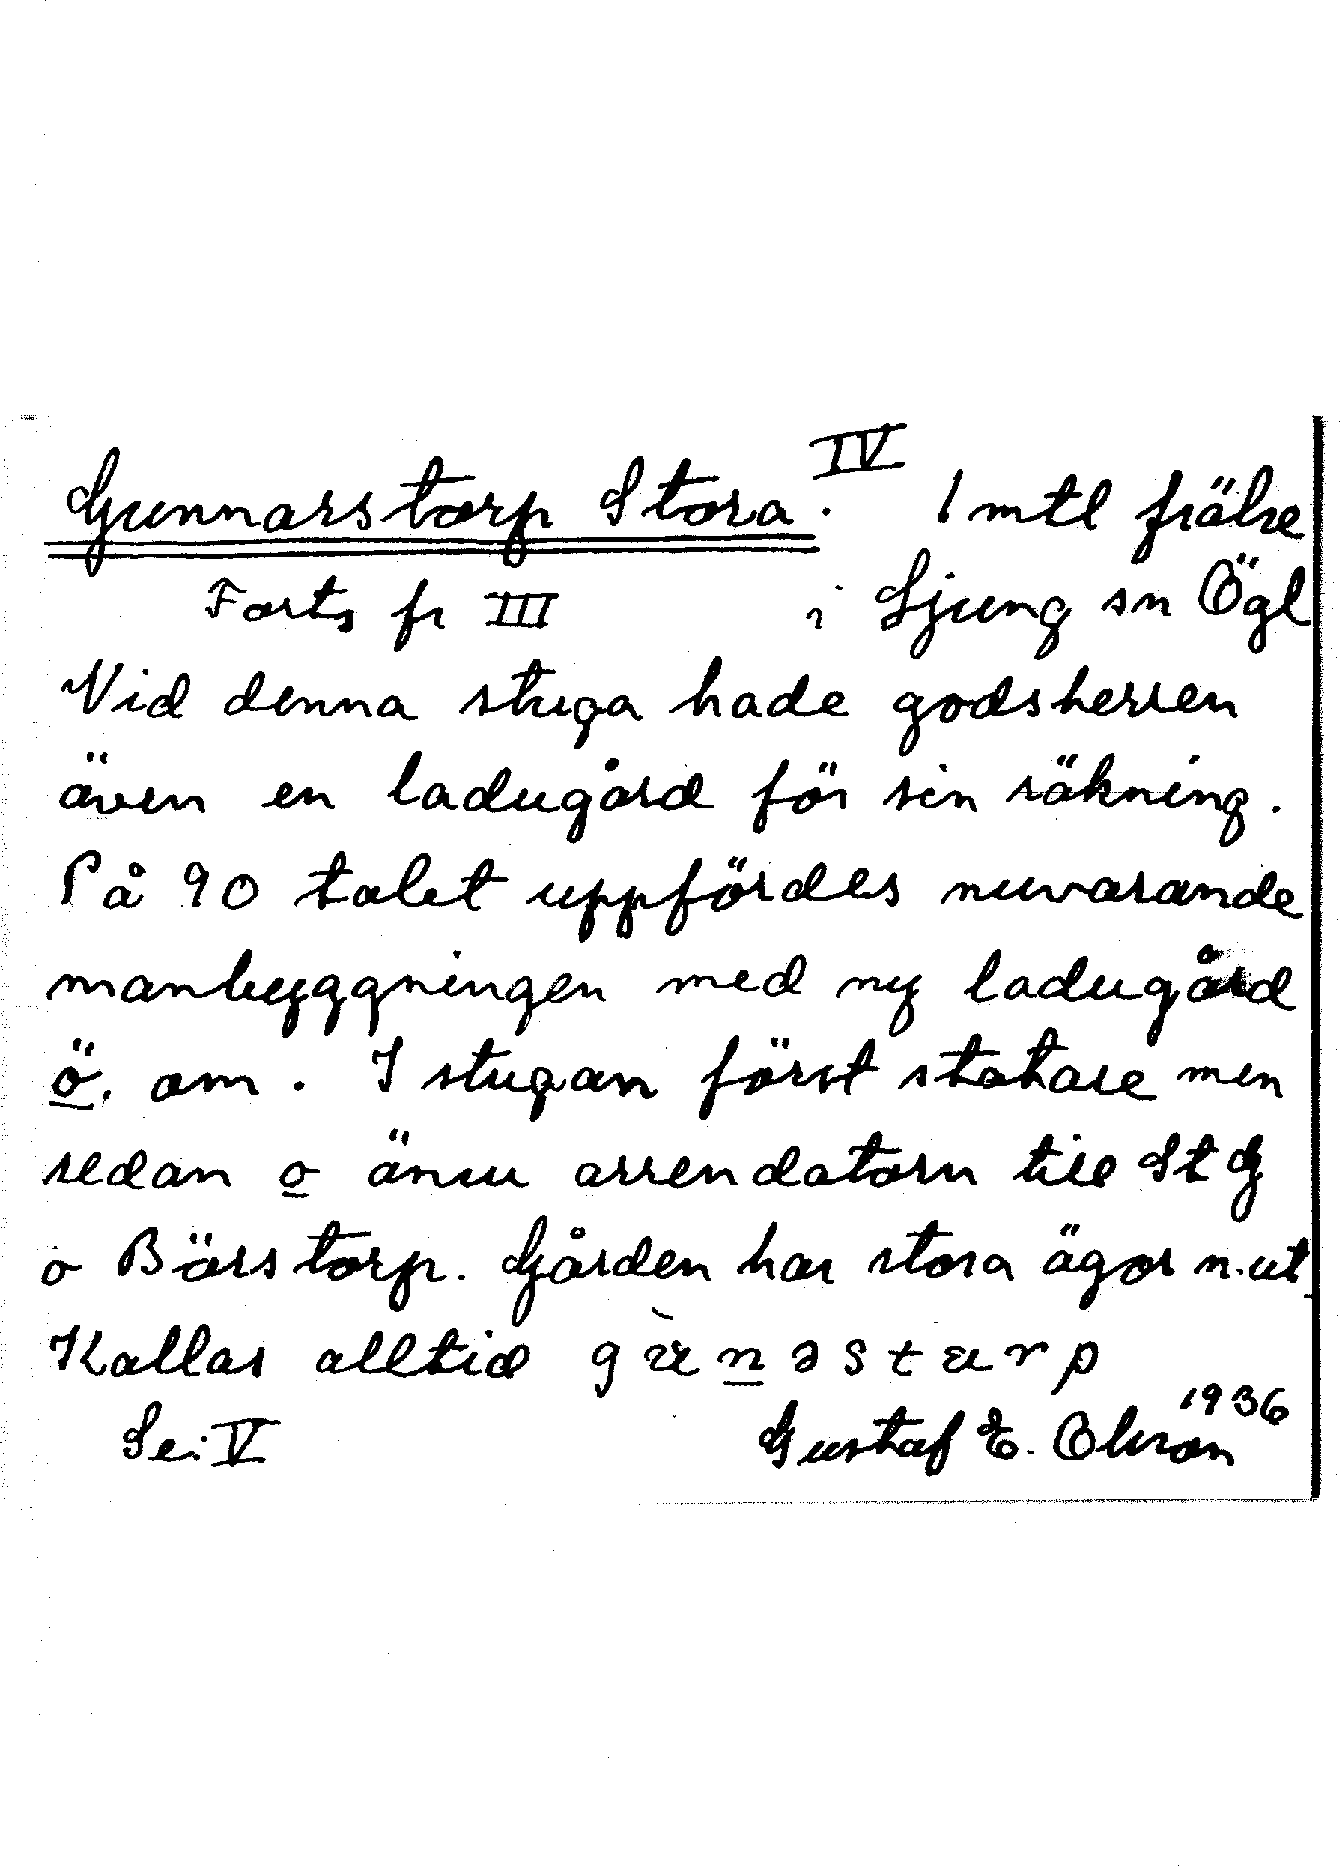 Gunnarstorp Stora. IV 1 mtl frälse
Forts fr III i Ljung sn Ögl
Vid denna stuga hade godsherren
även en ladugård för sin räkning.
På 90 talet uppfördes nuvarande
manbyggningen med ny ladugård
ö. om. I stugan först statare men
sedan o ännu arrendatorn till St G
o Bärstorp. Gården har stora ägor n.ut
Kallas alltid
Se: V Gustaf E. Olsson 1936